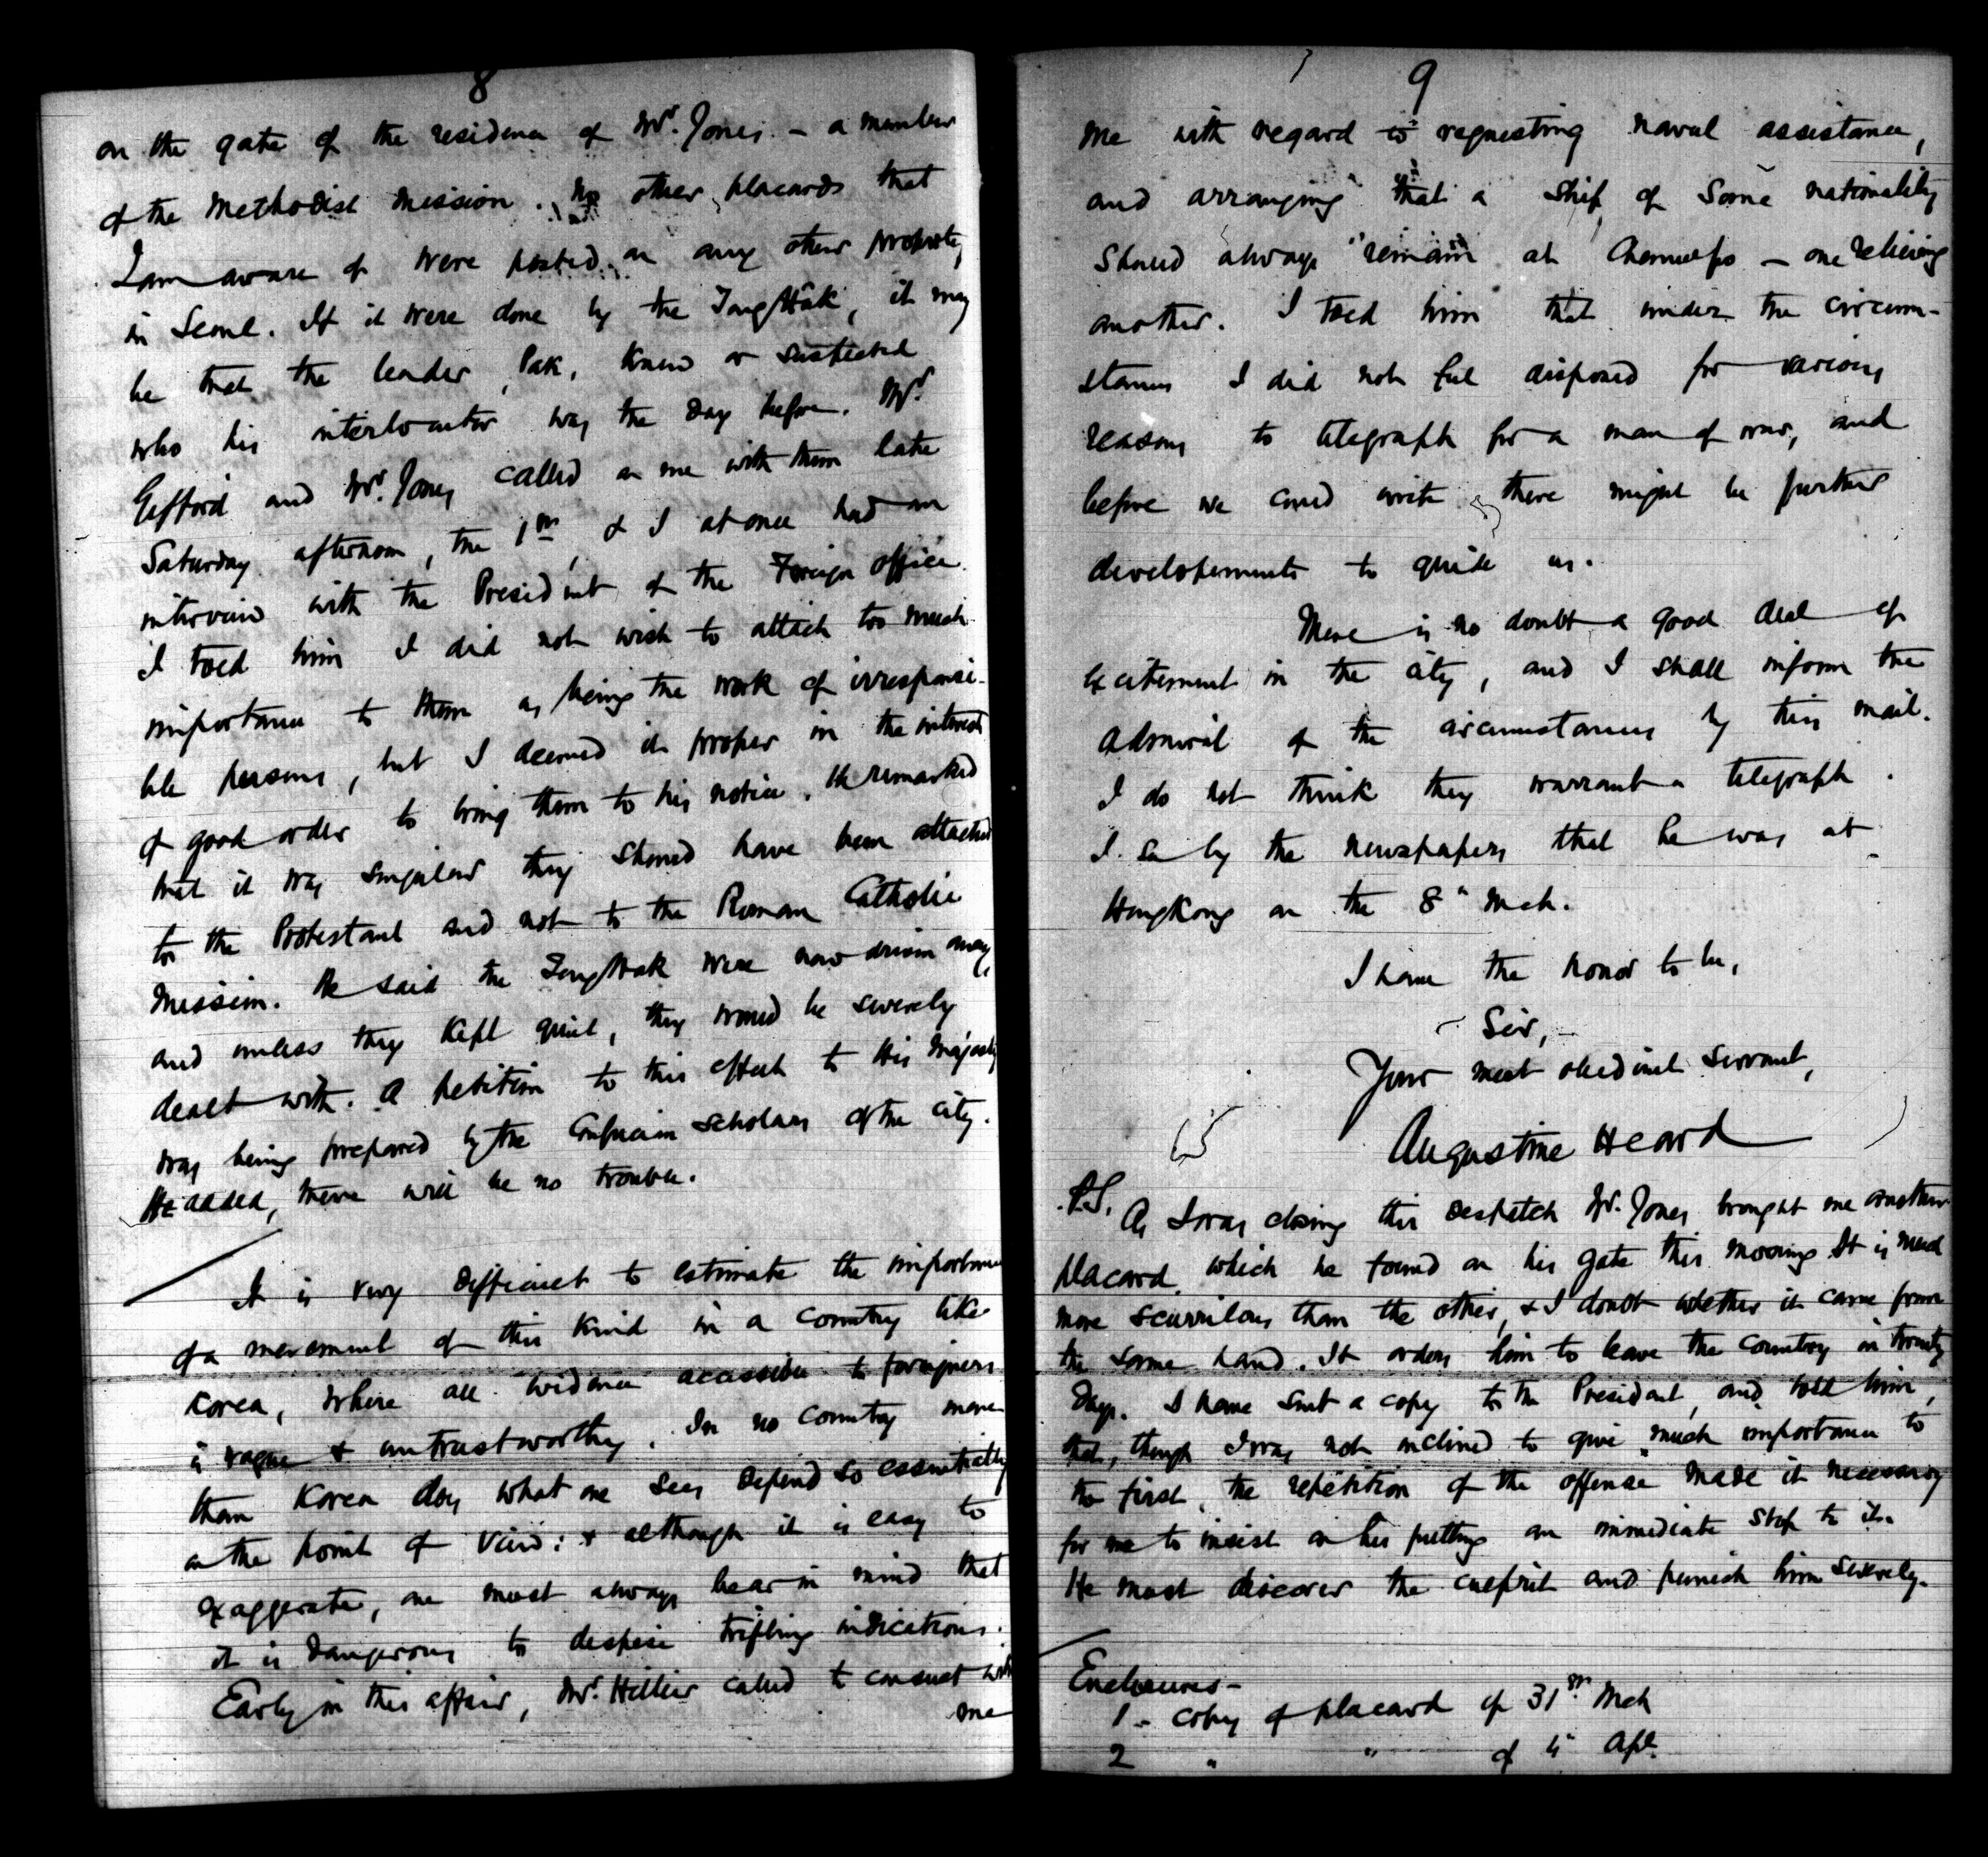 8
on the gate of the residence of Mr. Jones - a member
of the Methodist Mission. No other placards that
I am aware of were posted on any other property
in Seoul. If it were done by the Tong Hak, it may
be that the leader, Pak, knew or suspected
who his interlocutor was the day before. Mr.
Gifford and Mr. Jones called on me with them late
Saturday afternoon, the 1st, & I at once had an
interview with the President of the Foreign Office.
I told him I did not wish to attach too much
importance to them as being the work of irresponsi-
ble persons, but I deemed it proper in the interest
of good order to bring them to his notice. He remarked
that it was singular they should have been attached
to the Protestant and not to the Roman Catholic
Mission. He said the Tong Hak were now driven away
and unless they kept quiet, they would be severely
dealt with. A petition to this effect to His Majesty
was being prepared by the Confucian scholars of the city.
He added, there will be no trouble.
It is very difficult to estimate the importance
of a movement of this kind in a country like
Korea, where all evidence accessible to foreigners
is vague & untrustworthy. In no country more
than Korea does what one sees depend so essentially
on the point of view: & although it is easy to
exaggerate, one must always bear in mind that
it is dangerous to despise trifling indications.
Early in this affair, Mr. Hillier called to consult with
me
9
me with regard to requesting naval assistance,
and arranging that a ship of some nationality
should always remain at Chemulpo - one relieving
another. I told him that under the circum-
stances I did not feel disposed for various
reasons to telegraph for a man of war, and
before we could write, there might be further
developements to guide us.
There is no doubt a good deal of
excitement in the city, and I shall inform the
Admiral of the circumstances by this mail.
I do not think they warrant a telegraph.
I see by the newspapers that he was at
HongKong on the 8" Mch.
I have the honor to be,
Sir,
Your most obedient servant,
Augustine Heard
P.S. As I was closing this despatch Mr. Jones brought me another
placard, which he found on his gate this morning. It is much
more scurrilous than the other, & I doubt whether it came from
the same hand. It orders him to leave the country in twenty
days. I have sent a copy to the President, and told him,
that, though I was not inclined to give much importance to
the first, the repetition of the offense made it necessary
for me to insist on his putting an immediate stop to it.
He must discover the culprit and punish him severely.
Enclosures -
1 - copy of placard of 31st Mch
2 " " of 4" Apl.